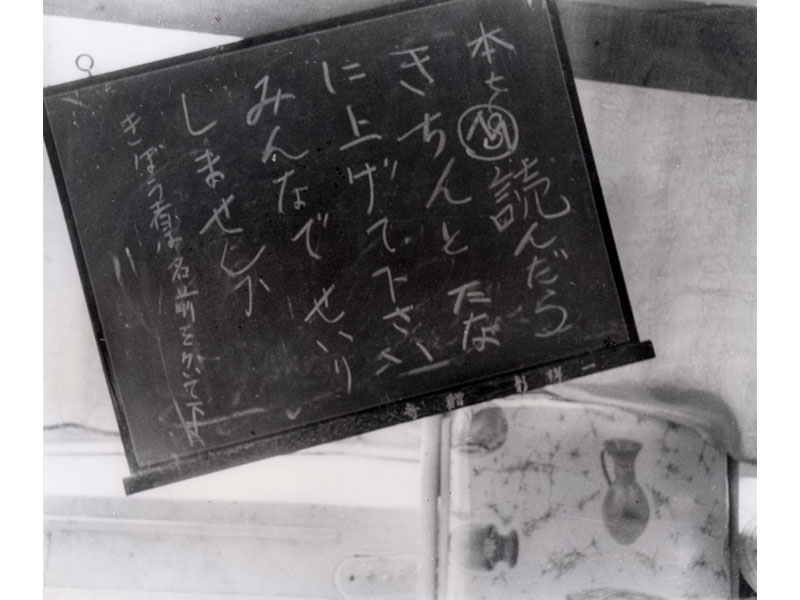 本を読んだら
きちんと だな
に上げて下さい
みんなで せいり
しませんか
きぼう者は名前をかいて下さい
寄贈